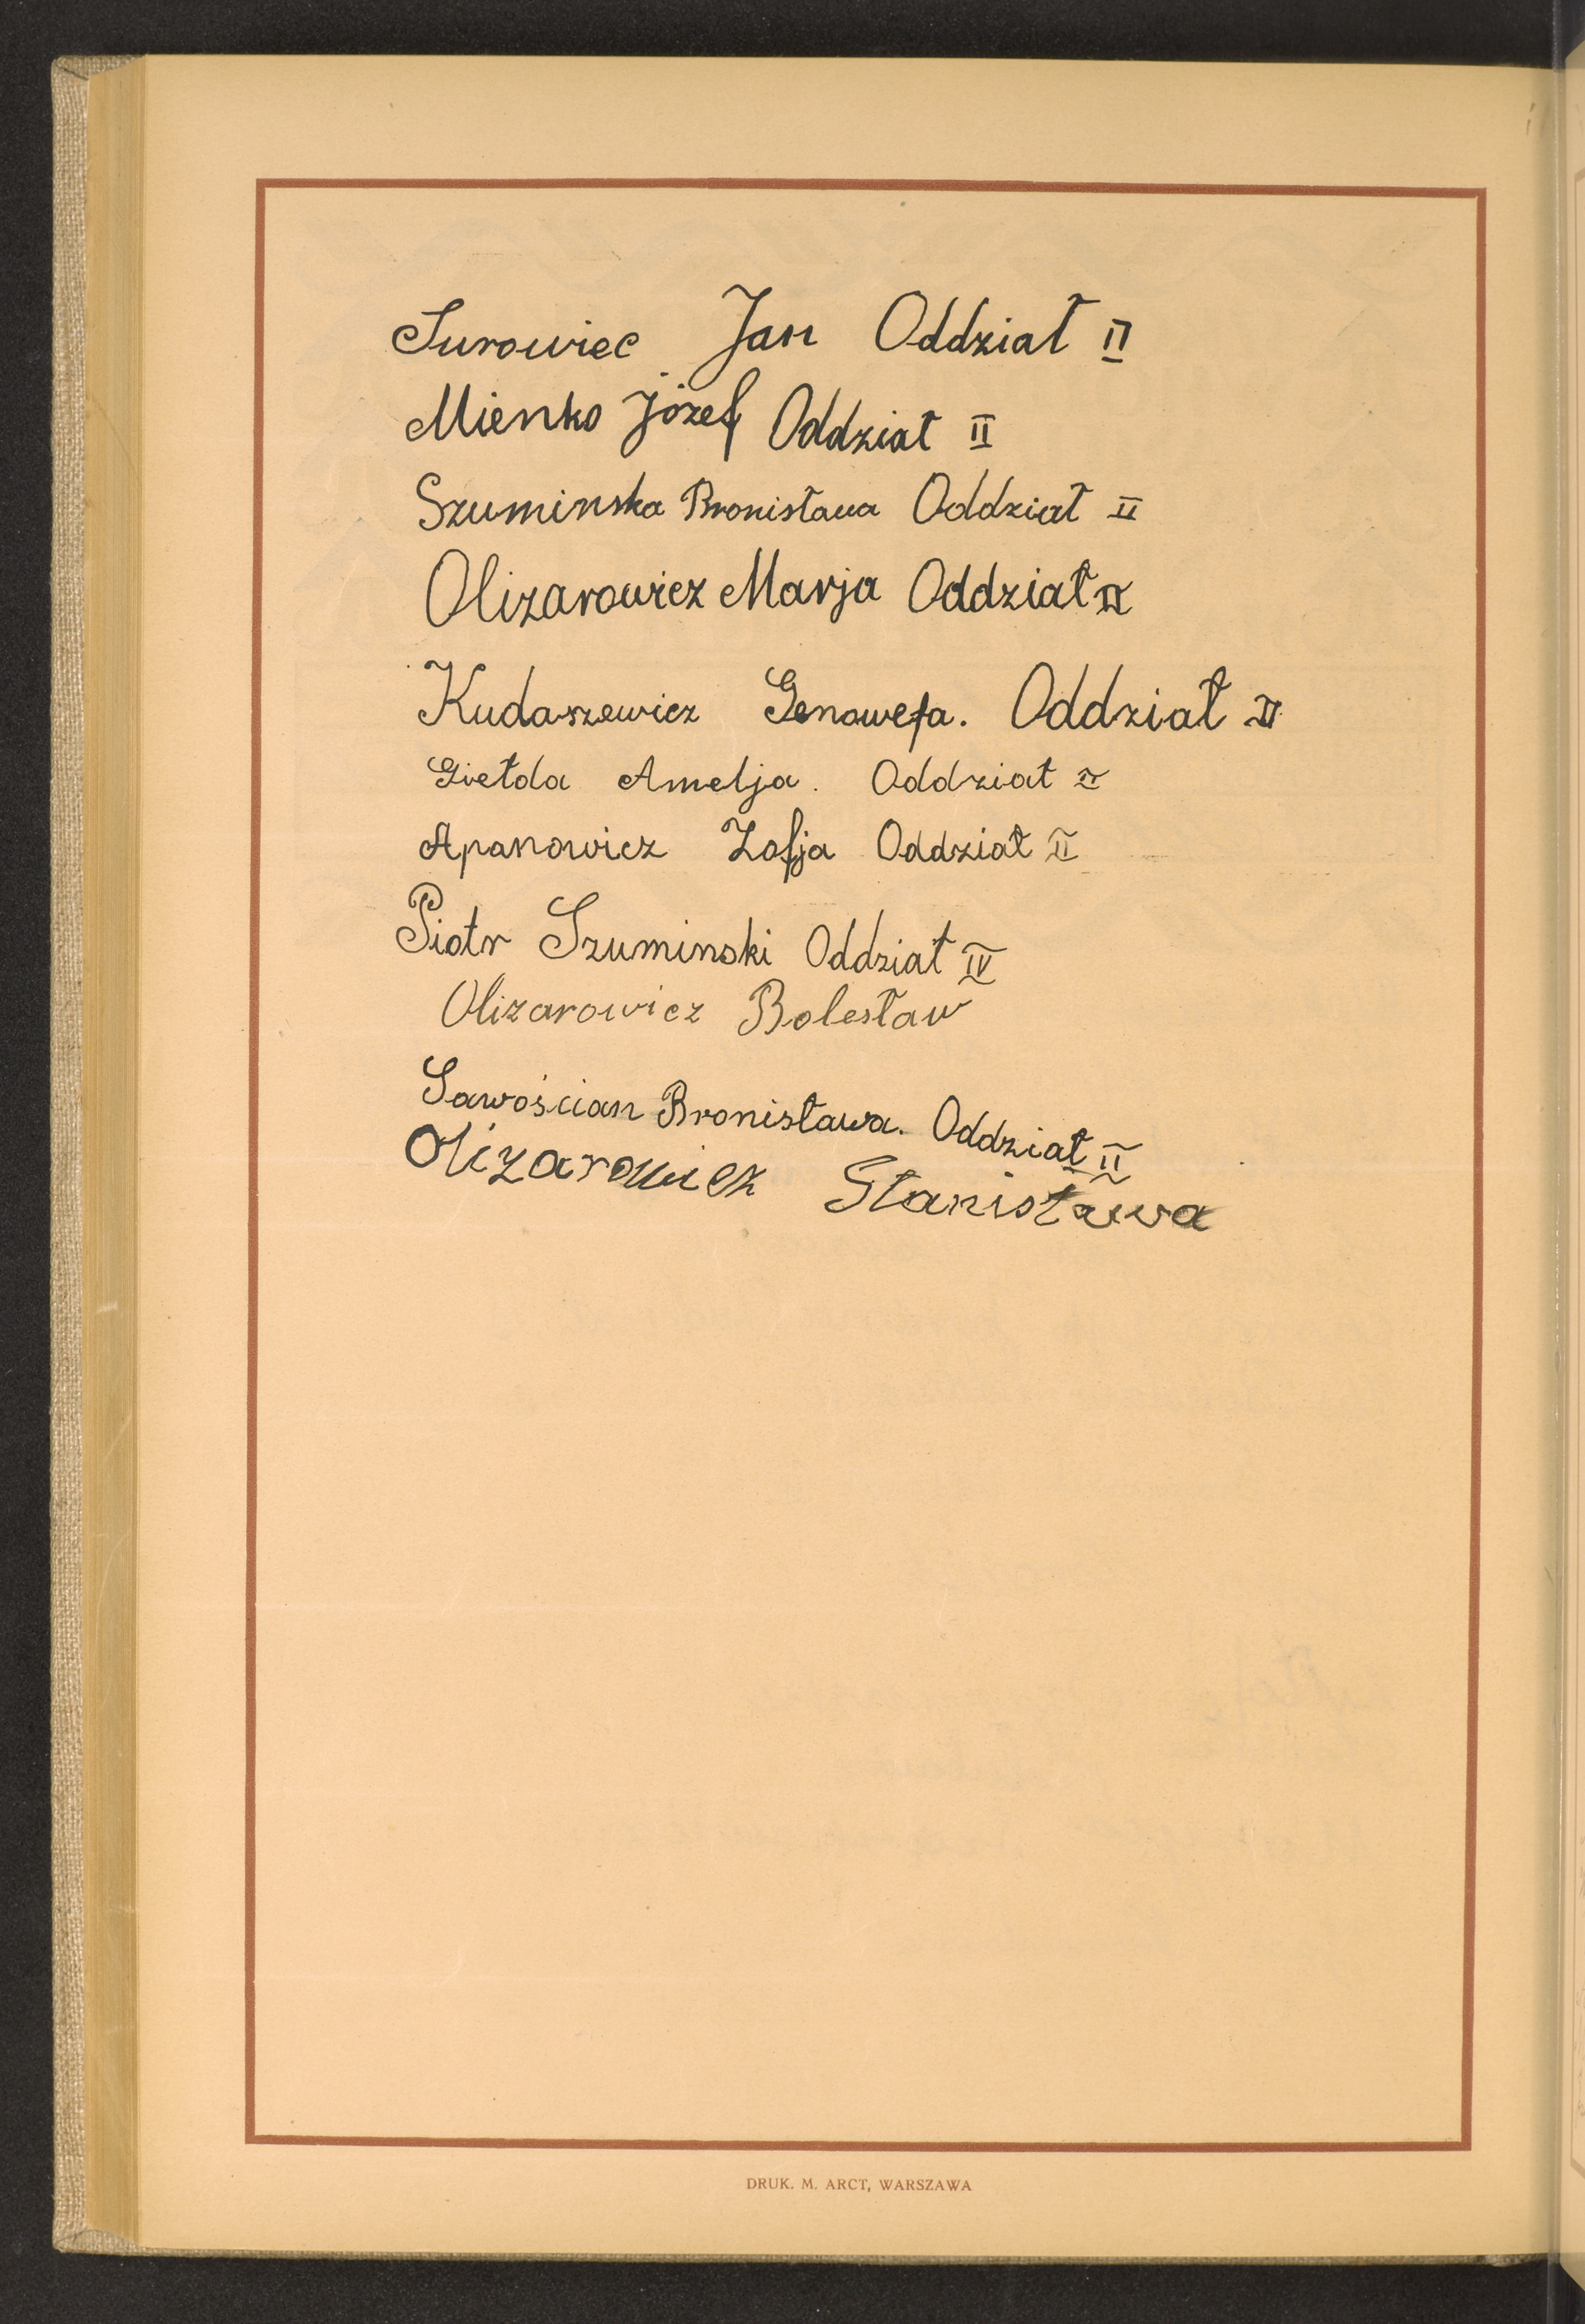 Surowiec Jan Oddział II
Mienko Józef Oddział II
Szuminska Bronisława Oddział II
Olizarowicz Marja Oddział II
Kudaszewicz Genowefa. Oddział II
Giełda Amelja. Oddział II
Apanowicz Zofja Oddział II
Piotr Szuminski Oddział IV
Olizarowicz Bolesław
Sawościan Bronisława. Oddział II
Olizarowicz Stanisława
DRUK. M. ARCT, WARSZAWA